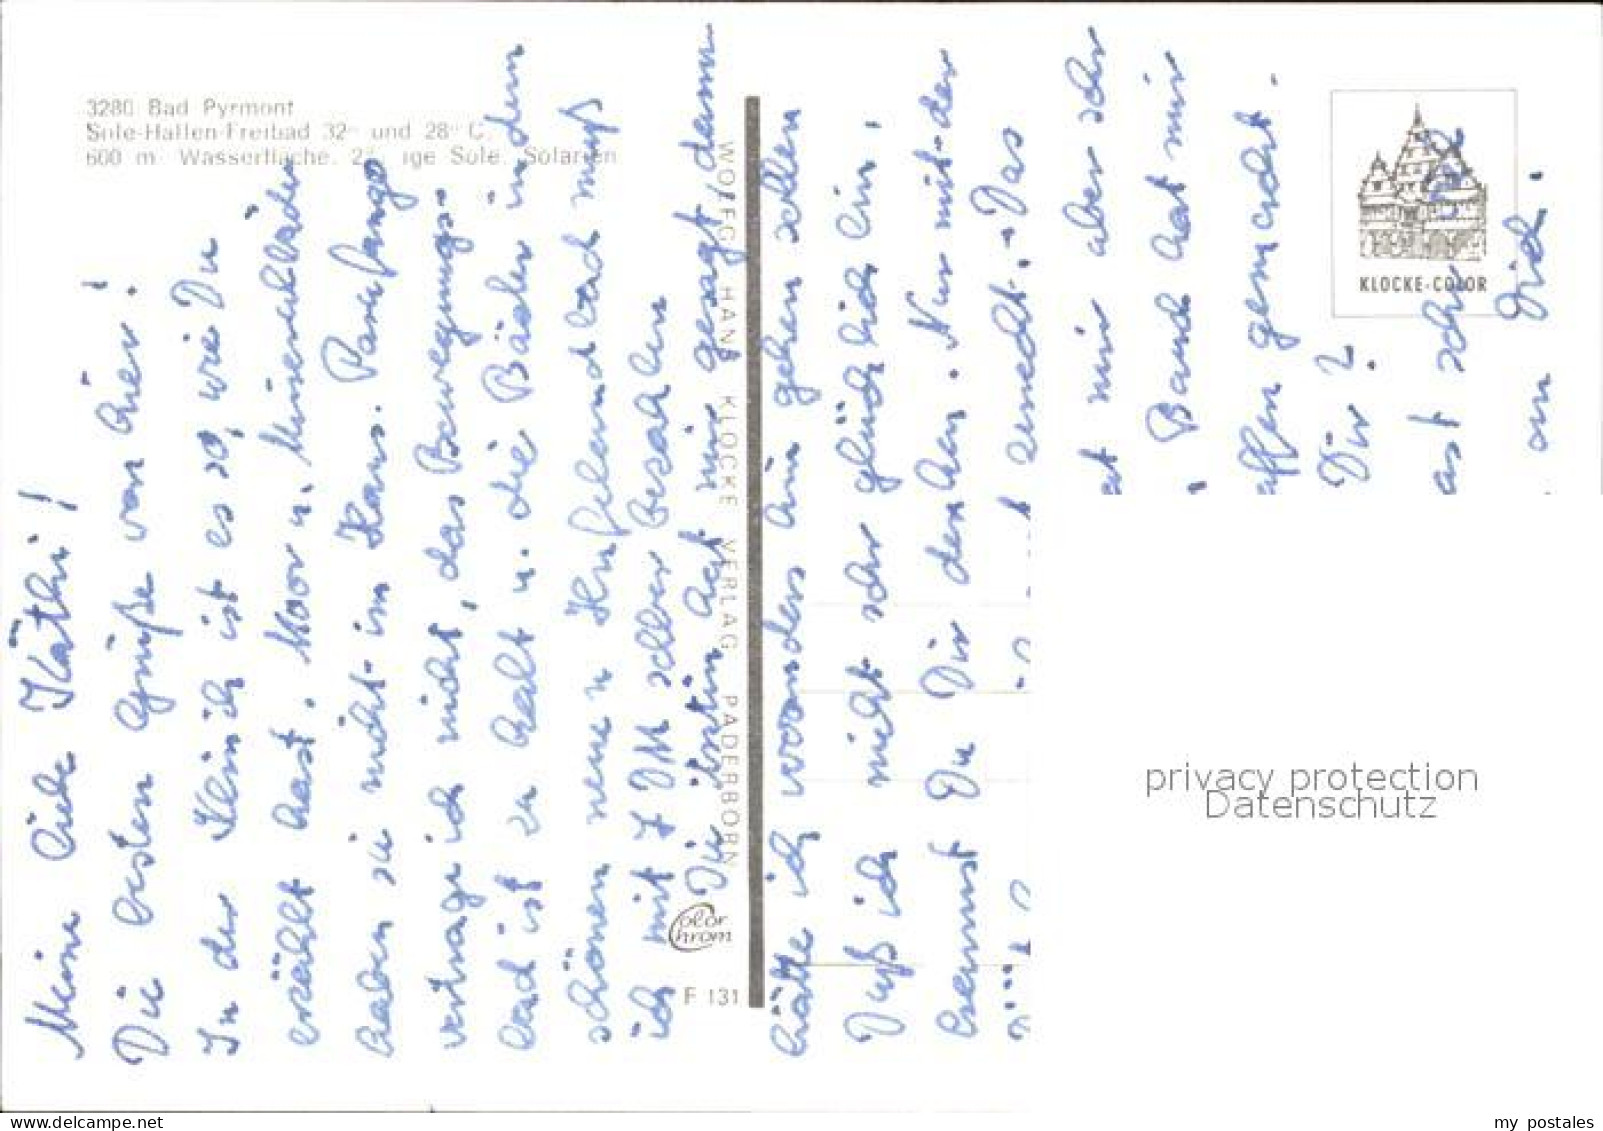 3280 Bad Pyrmont
Sole-Hallen-Freibad 32° und 28° C.
600 m Wasserfläche. ige Sole. Solarien
Meine liebe Käthi!
Die besten Grüße von hier!
In der Klinik ist es so, wie Du
erzählt hast. Moor u. Mineralbäder
haben sie nicht im Haus. Parafango
vertrage ich nicht, das Bewegungs-
bad ist zu kalt u. die Bäder in dem
schönen neuen Hufelandbad muß
ich mit 7 DM selber bezahlen
Die Ärztin hat mir gesagt, dann
hätte ich woanders hin gehen sollen
Daß ich nicht sehr glücklich bin,
kannst Du Dir denken. Nur mit der
Das
mir aber sehr
Bauch hat mir
affen gemacht.
Dir?
ast sehr
an Dich.
WOLFG. HANS KLOCKE VERLAG PADERBORN
Color
Chrom
F 131
KLOCKE-COLOR
privacy protection
Datenschutz
my postales